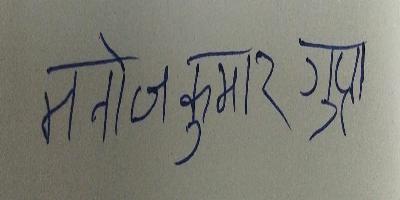 मनोज कुमार गुप्ता